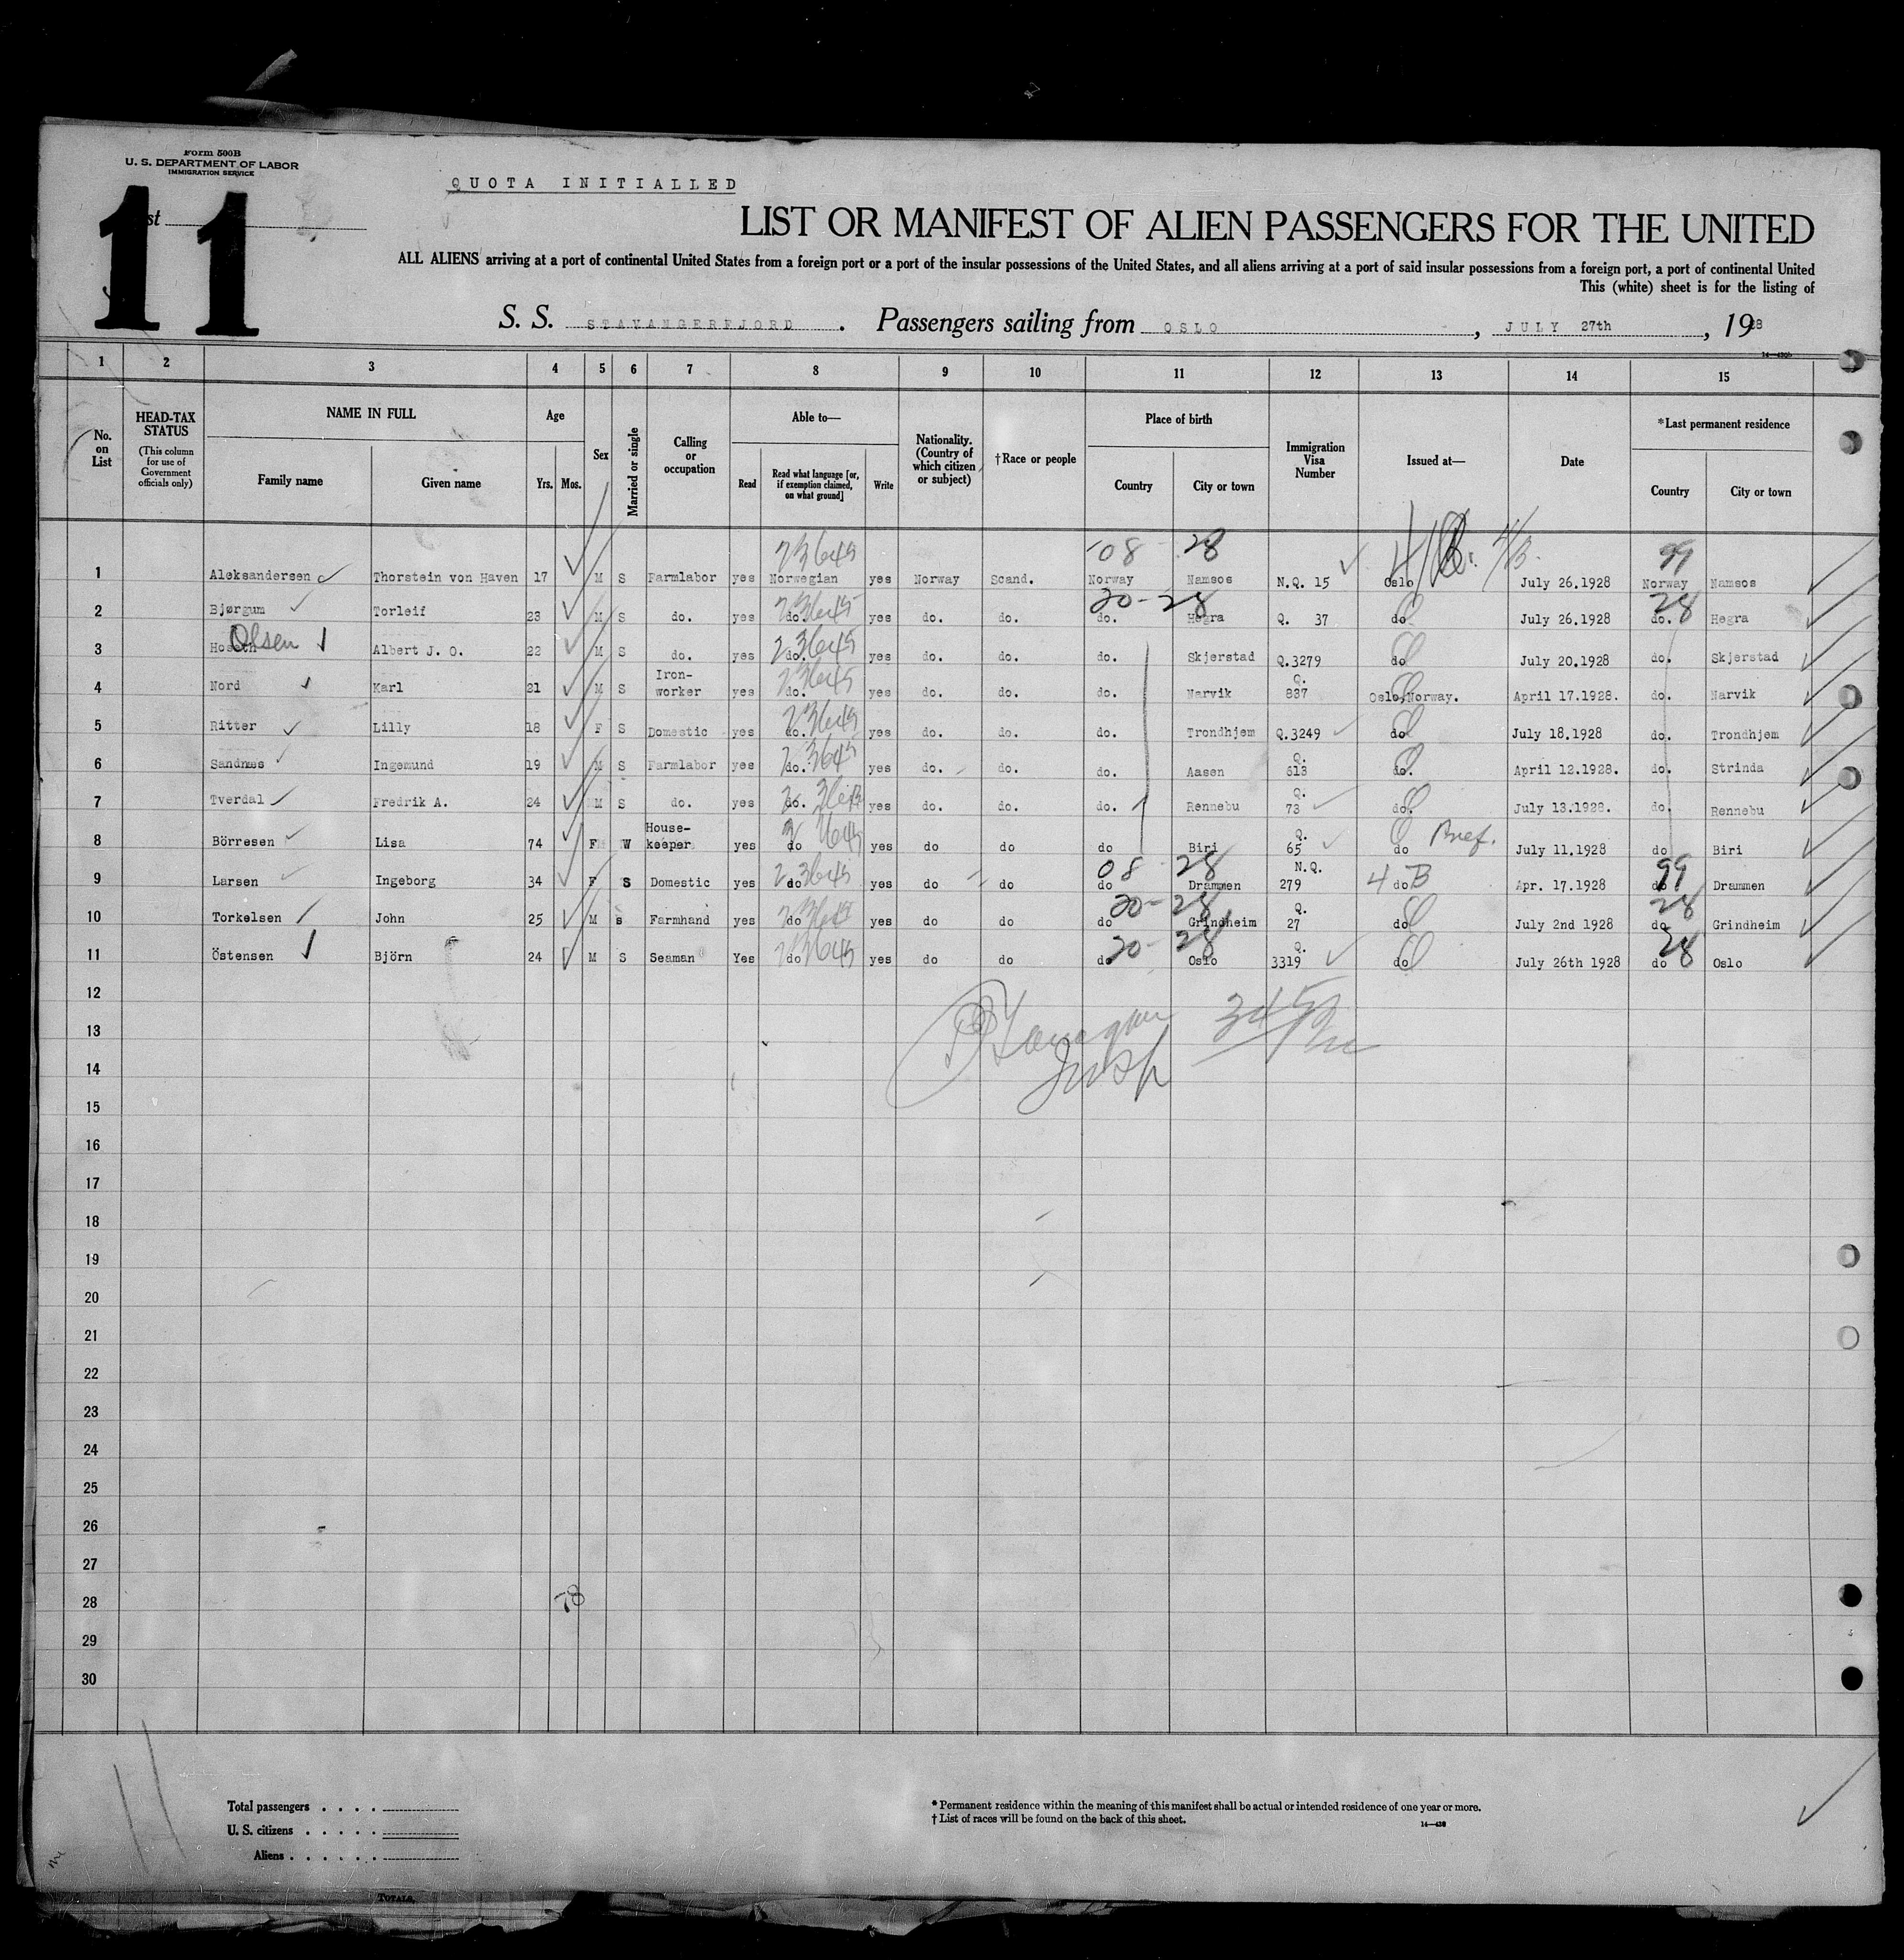 Form 500B
U. S. DEPARTMENT OF LABOR
IMMIGRATION SERVICE
11
QUOTA INITIALLED
LIST OR MANIFEST OF ALIEN PASSENGERS FOR THE UNITED
ALL ALIENS arriving at a port of continental United States from a foreign port or a port of the insular possessions of the United States, and all aliens arriving at a port of said insular possessions from a foreign port, a port of continental United
This (white) sheet is for the listing of
S. S. STAVANGERFJORD . Passengers sailing from OSLO , JULY 27th , 1928
1 2 3 4 5 6 7 8 9 10 11 12 13 14 15
No. on List
HEAD-TAX STATUS (This column for use of Government officials only)
NAME IN FULL
Family name Given name
Age
Yrs. Mos.
Sex
Married or single
Calling or occupation
Able to—
Read Read what language [or, if exemption claimed, on what ground] Write
Nationality. (Country of which citizen or subject)
†Race or people
Place of birth
Country City or town
Immigration Visa Number
Issued at—
Date
*Last permanent residence
Country City or town
73645 08 28 4/B. 99
1 Aleksandersen Thorstein von Haven 17 M S Farmlabor yes Norwegian yes Norway Scand. Norway Namsos N.Q. 15 Oslo July 26.1928 Norway Namsos
20-28 28
2 Bjørgum Torleif 23 M S do. yes do. yes do. do. do. Hegra Q. 37 do July 26.1928 do. Hegra
Olsen
3 Albert J. O. 22 M S do. yes do. yes do. do. do. Skjerstad Q.3279 do July 20.1928 do. Skjerstad
4 Nord Karl 21 M S Iron-worker yes do. yes do. do. do. Narvik Q. 837 Oslo,Norway. April 17.1928. do. Narvik
5 Ritter Lilly 18 F S Domestic yes do. yes do. do. do. Trondhjem Q.3249 do July 18.1928 do. Trondhjem
6 Sandnæs Ingemund 19 M S Farmlabor yes do. yes do. do. do. Aasen Q. 613 do. April 12.1928. do. Strinda
7 Tverdal Fredrik A. 24 M S do. yes do. yes do. do. do. Rennebu Q. 73 do. July 13.1928. do. Rennebu
8 Börresen Lisa 74 F W House-keeper yes do yes do do do Biri Q. 65 do July 11.1928 do Biri
08 28 4 B 99
9 Larsen Ingeborg 34 F S Domestic yes do yes do do do Drammen N.Q. 279 do Apr. 17.1928 do Drammen
20-28 28
10 Torkelsen John 25 M s Farmhand yes do yes do do do Grindheim Q. 27 do July 2nd 1928 do Grindheim
20-28 28
11 Östensen Björn 24 M S Seaman Yes do yes do do do Oslo Q. 3319 do July 26th 1928 do Oslo
12
13
14
15
16
17
18
19
20
21
22
23
24
25
26
27
28
78
29
30
Total passengers . . . .
U. S. citizens . . . . .
Aliens . . . . . .
* Permanent residence within the meaning of this manifest shall be actual or intended residence of one year or more.
† List of races will be found on the back of this sheet.
14—438
TOTALS,